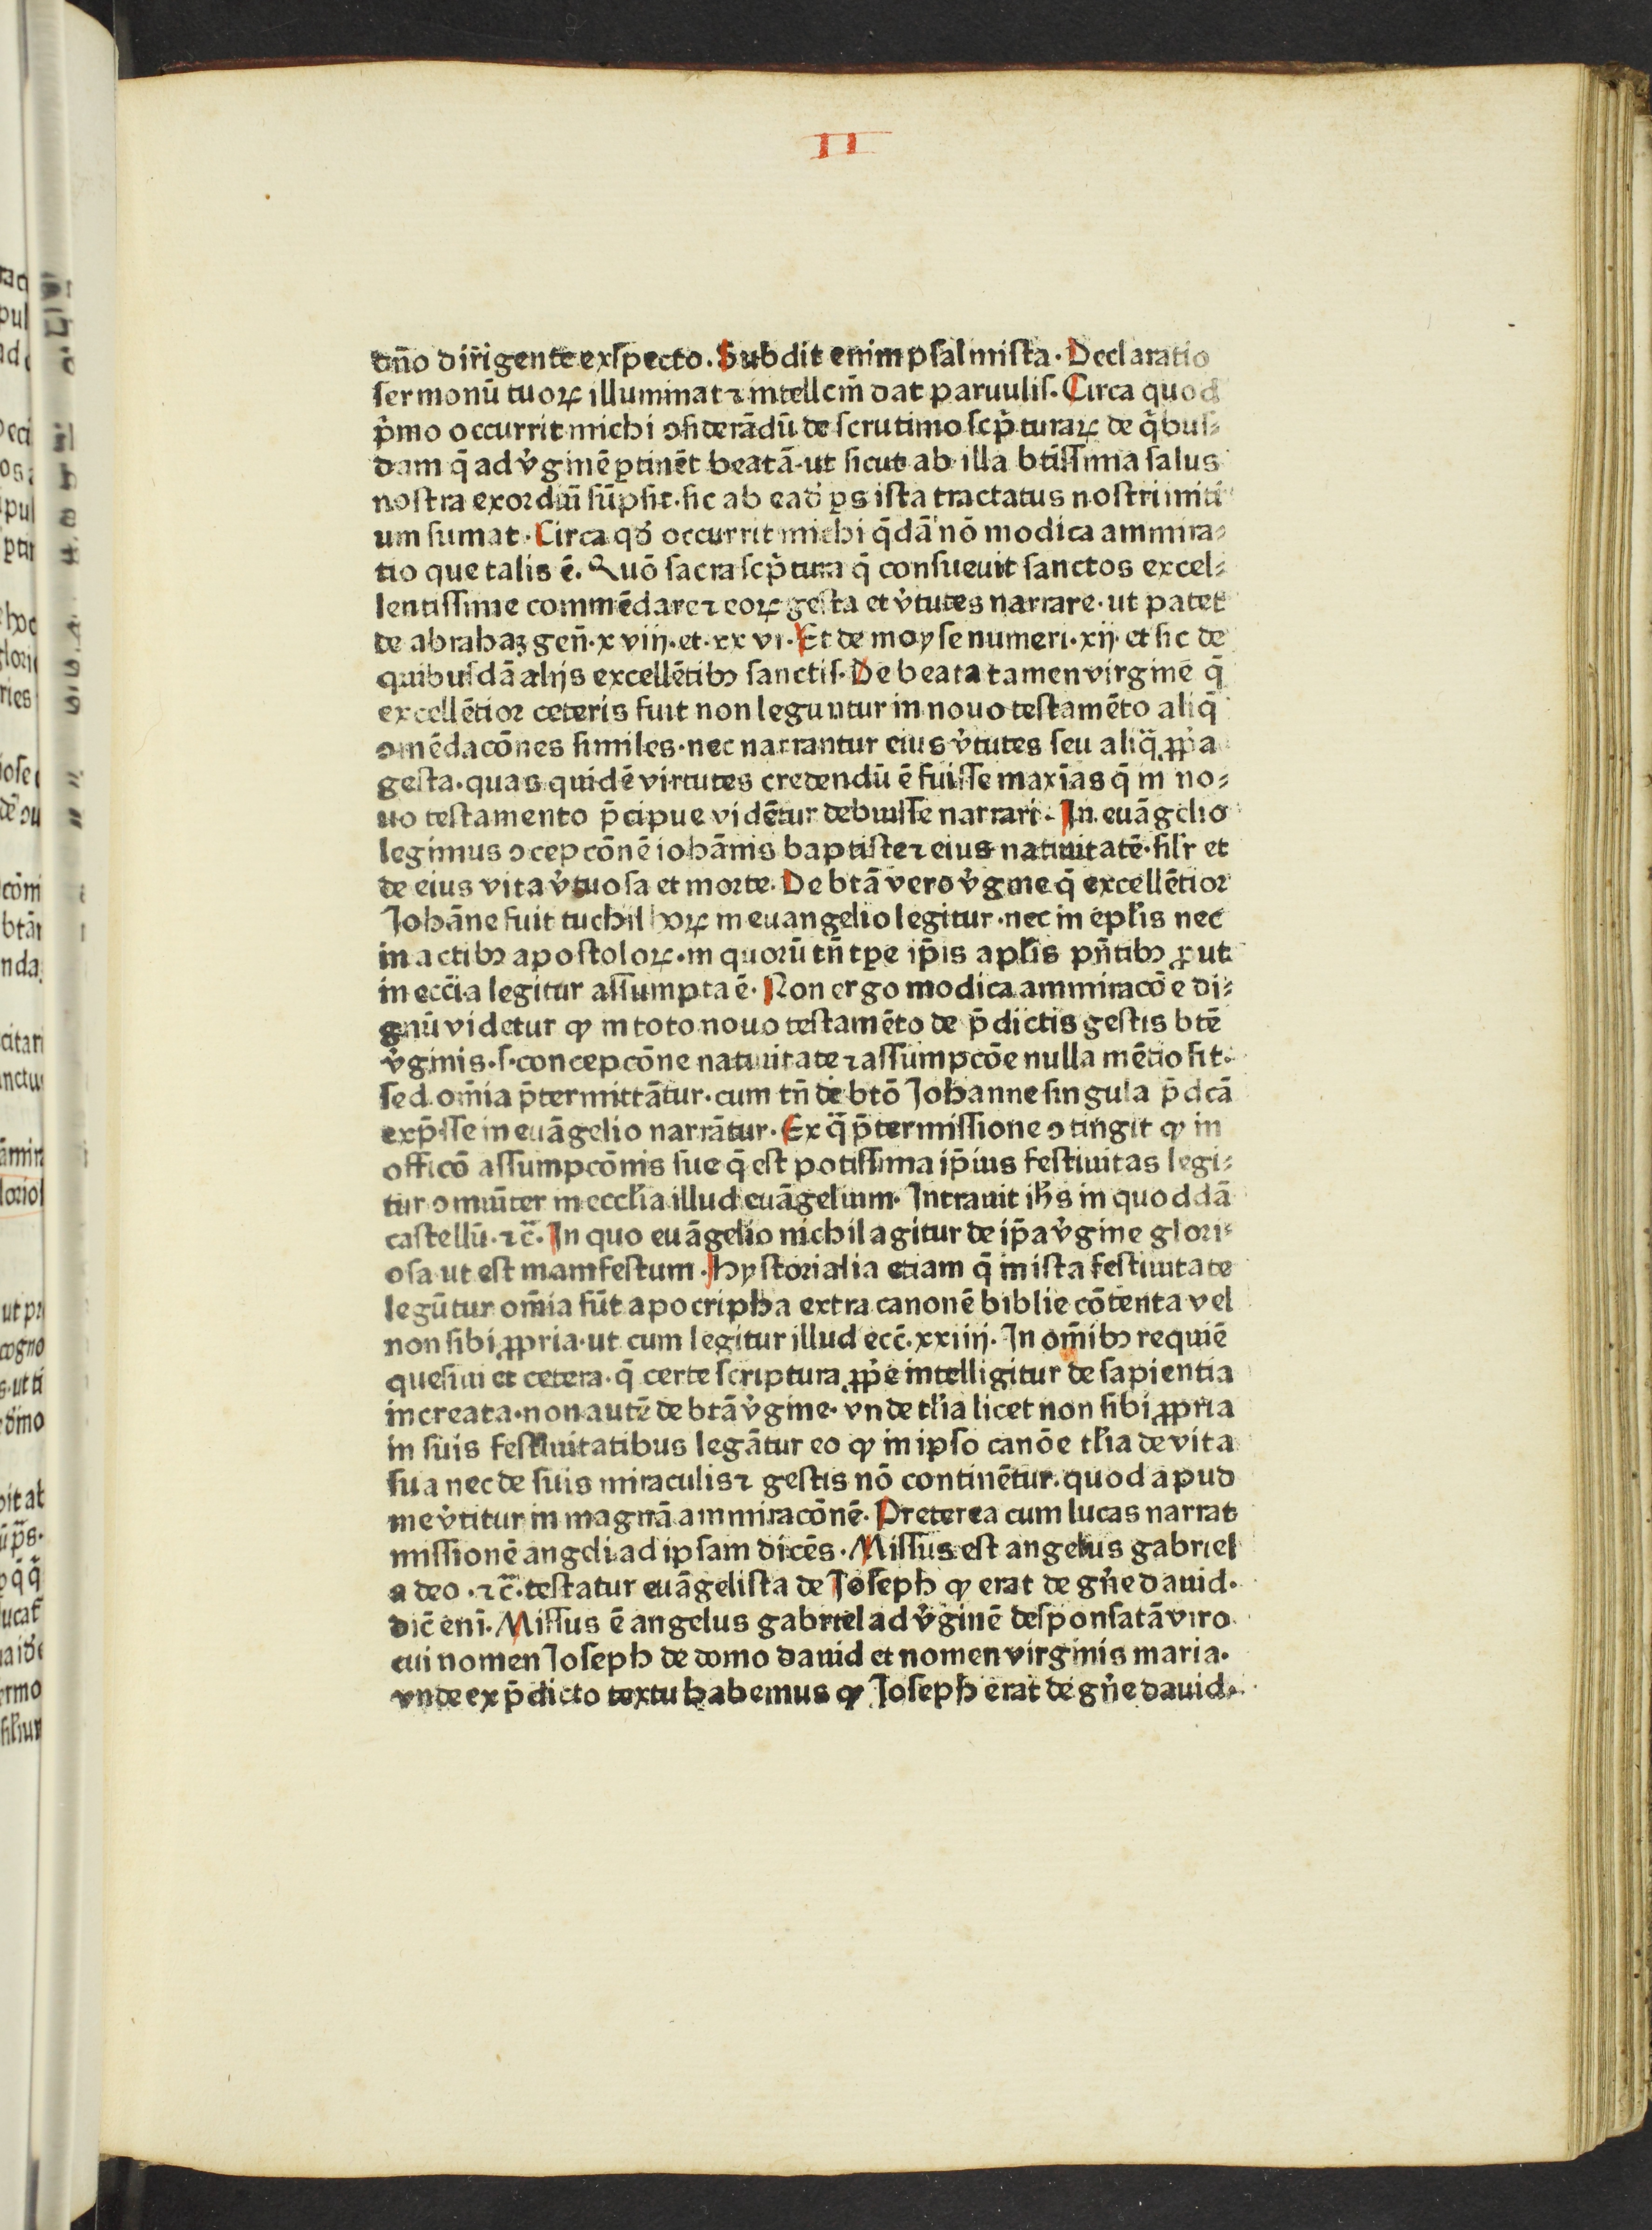 II
dn̄o dir̄igente exſpecto. Subdit enim pſalmiſta. Declaratio
ſermonū tuoꝝ illuminat ⁊ intellcm̄ dat paruuliſ. Circa quod
p̄mo occurrit michi ꝯſiderādū de ſcrutinio ſcp̄turaꝝ de q̄buſ⸗
dam q̄ ad v̓ginē ꝑtinēt beatā· ut ſicut ab illa btīſſima ſalus
noſtra exordiū ſūpſit· ſic ab ead̄ ꝑs iſta tractatus noſtri initi
um ſumat. Circa qd̓ occurrit michi q̄dā nō modica ammira⸗
tio que talis ē. Quō ſacra ſcp̄tura q̄ conſueuit ſanctos excel⸗
lentiſſime commēdare ⁊ eoꝝ geſta et v̓tutes narrare· ut patet
de abrahaꝫ gen̄· xviij· et· xxvi· Et de moyſe numeri· xij· et ſic de
quibuſdā alijs excellētibꝰ ſanctiſ. De beata tamen virgine q̄
excellētior ceteris fuit non leguntur in nouo teſtamēto aliq̄
ꝯmēdacōnes ſimiles· nec narrantur eius v̓tutes ſeu aliq̄ ꝓp̓a
geſta· quas quidē virtutes credendū ē fuiſſe maxīas q̄ in no⸗
uo teſtamento p̄cipue vidētur debuiſſe narrari. In euāgelio
legimus ꝯcepcōnē iohānis baptiſte ⁊ eius natiuitatē· ſil̄r et
de eius vita v̓tuoſa et morte. De btā vero v̓gine q̄ excellētior
Johāne fuit nichil hoꝝ in euangelio legitur· nec in epl̄is nec
in actibꝰ apoſtoloꝝ· in quorū tn̄ tꝑe ip̄is apl̄is pn̄tibꝰ ꝓut
in ecc̄ia legitur aſſumpta ē· Non ergo modica ammiracōe di⸗
gnū videtur ꝙ in toto nouo teſtamēto de p̄dictis geſtis btē
v̓ginis· ſ· concepcōne natiuitate ⁊ aſſumpcōe nulla mētio fit·
ſed om̄ia p̄termittātur· cum tn̄ de btō Johanne ſingula p̄dcā
exp̄ſſe in euāgelio narrātur. Ex q̄ p̄termiſſione ꝯtingit ꝙ in
officō aſſumpcōnis ſue q̄ eſt potiſſima ip̄ius feſtiuitas legi⸗
tur ꝯmūiter in eccl̄ia illud euāgelium. Intrauit ih̄s in quoddā
caſtellū· ⁊c̄. In quo euāgelio nichil agitur de ip̄a v̓gine glori⸗
oſa ut eſt manifeſtum. Hyſtorialia etiam q̄ in iſta feſtiuitate
legūtur om̄ia ſūt apocripha extra canonē biblie cōtenta vel
non ſibi ꝓpria· ut cum legitur illud ecc̄· xxiiij· In om̄ibꝰ requiē
queſiui et cetera· q̄ certe ſcriptura ꝓp̓e intelligitur de ſapientia
increata· non autē de btā v̓gine· vnde tl̄ia licet non ſibi ꝓpria
in ſuis feſtiuitatibus legātur eo ꝙ in ipſo canōe tl̄ia de vita
ſua nec de ſuis miraculis ⁊ geſtis nō continētur· quod apud
me v̓titur in magnā ammiracōnē. Preterea cum lucas narrat
miſſionē angeli ad ipſam dicēs. Miſſus eſt angelus gabriel
a deo· ⁊c̄· teſtatur euāgeliſta de Joſeph ꝙ erat de gn̓e dauid·
dic̄ eni̅. Miſſus ē angelus gabriel ad v̓ginē deſponſatā viro
cui nomen Joſeph de domo dauid et nomen virginis maria.
vnde ex p̄dicto textu habemus ꝙ Joſeph erat de gn̓e dauid.